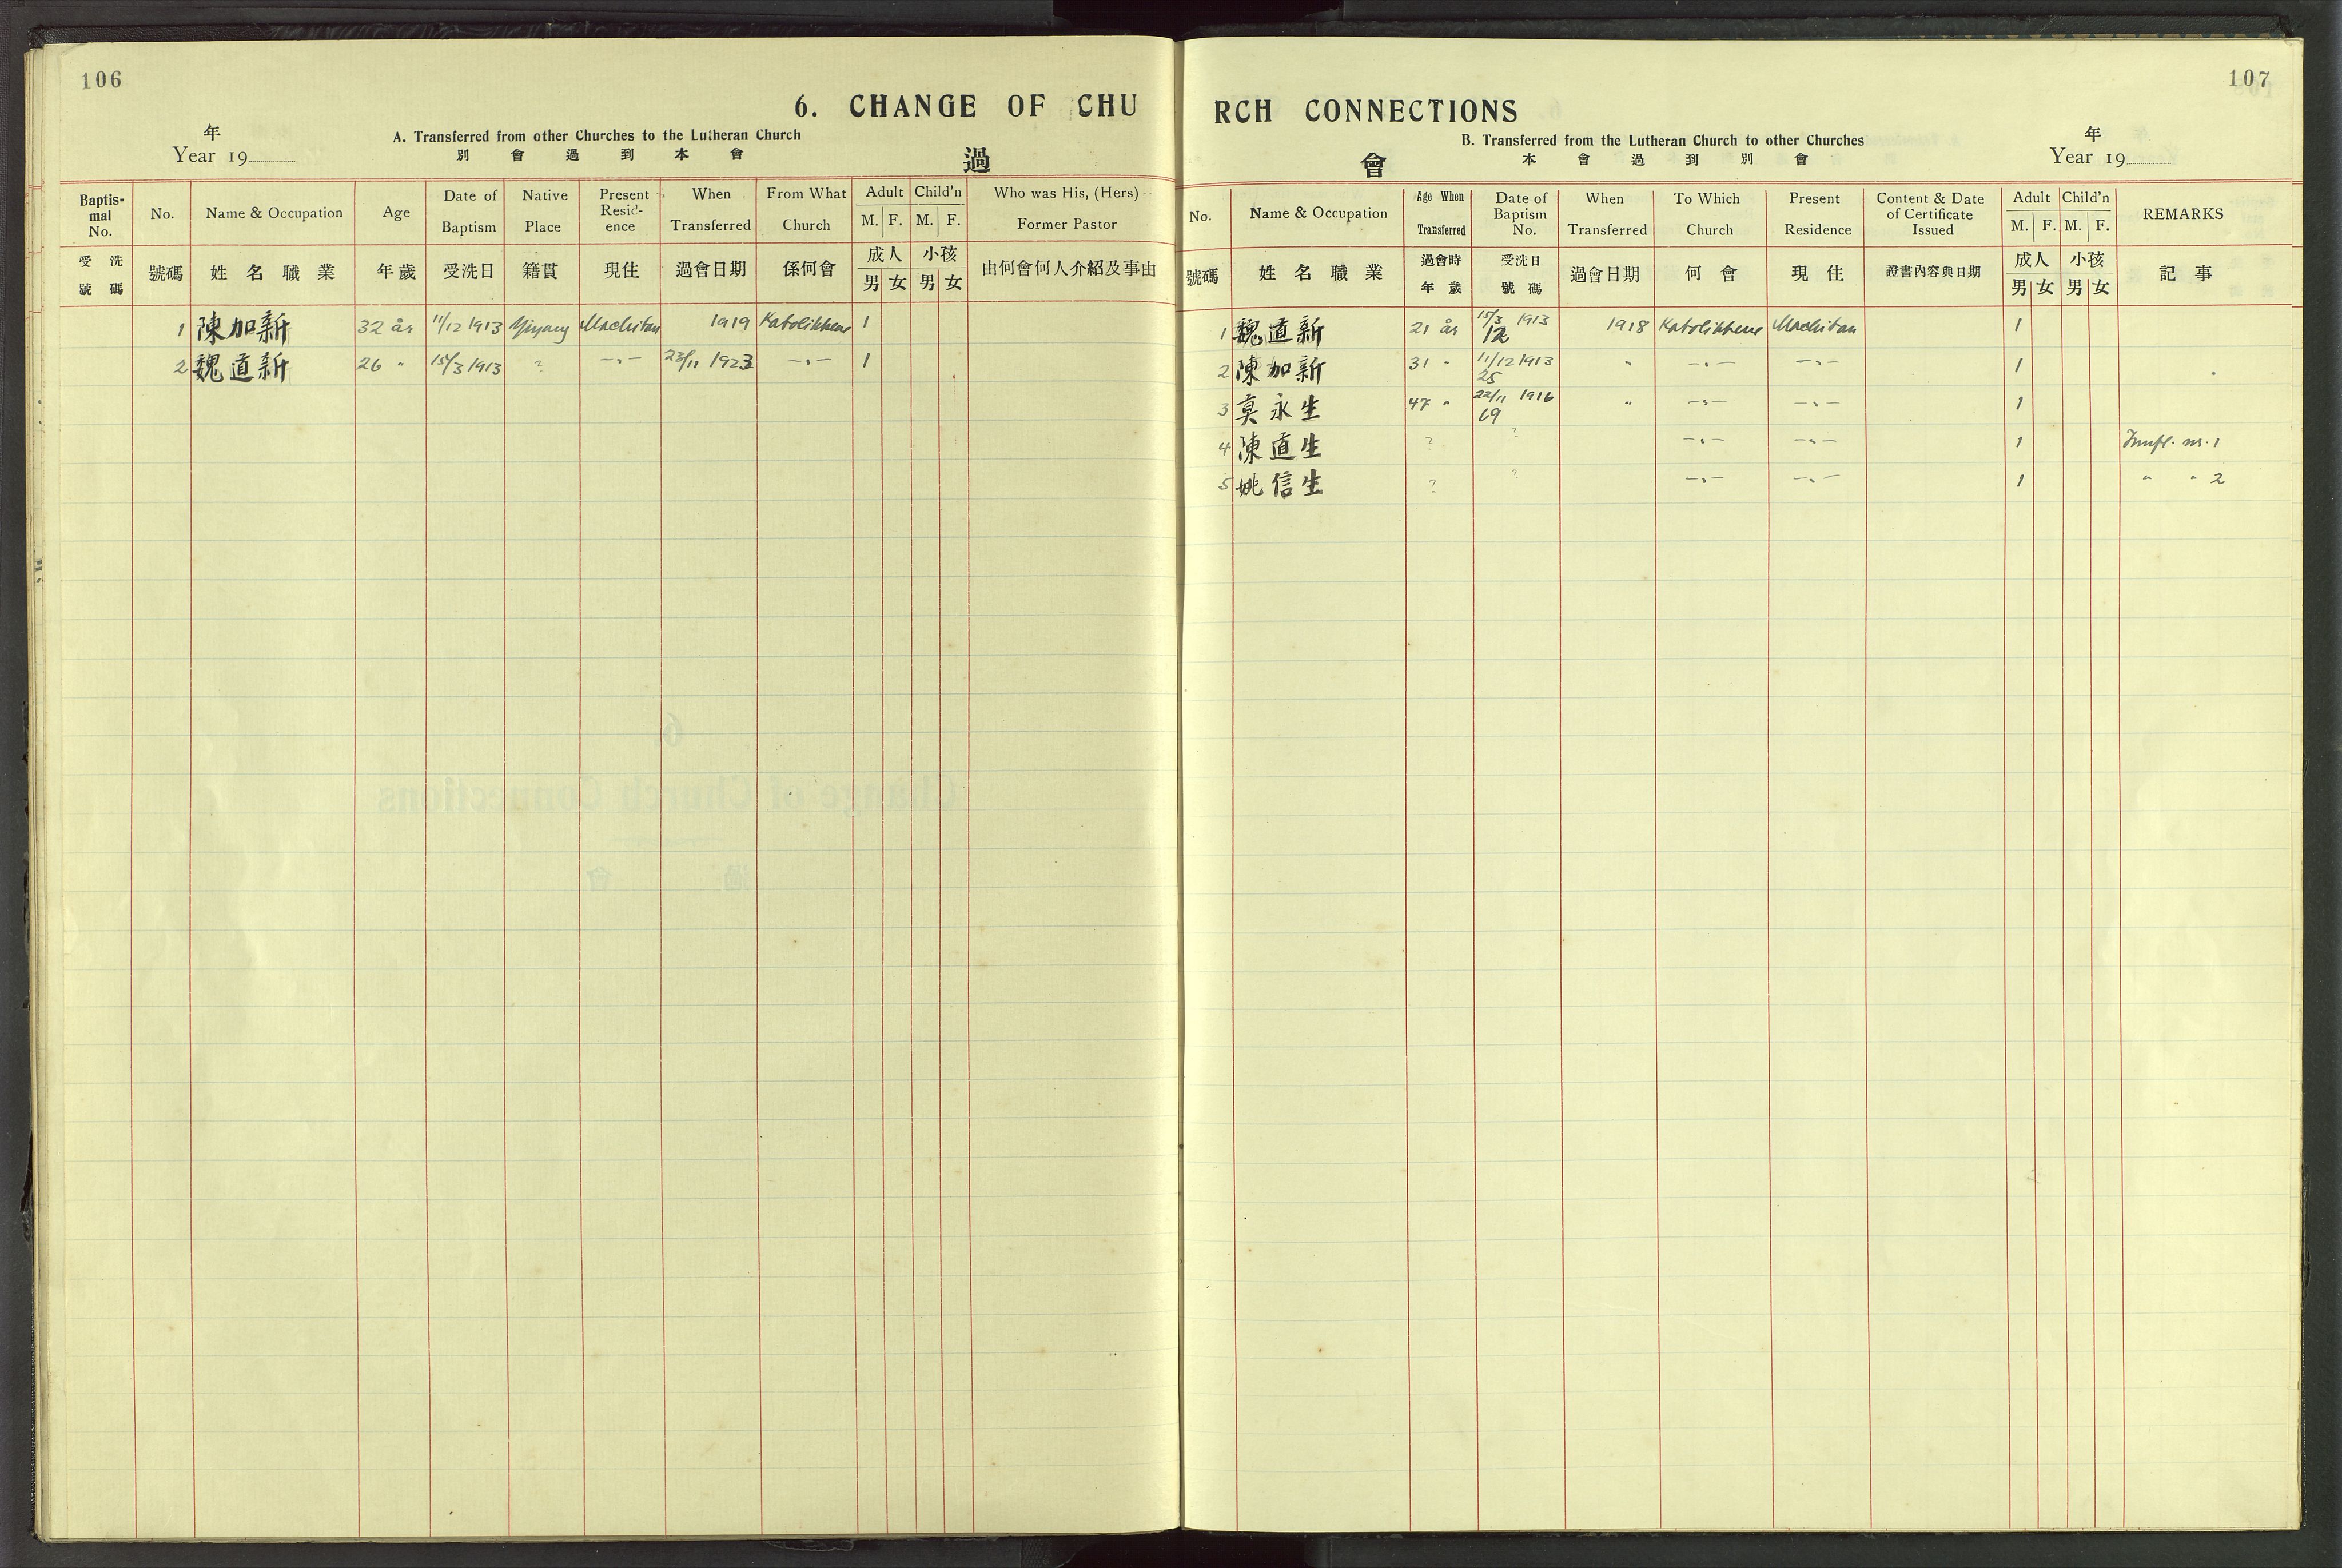 106
6. CHANGE OF CHU
年
Year 19
A. Transferred from other Churches to the Lutheran Church
別會過到本會
過
Baptis-mal No. No. Name & Occupation Age Date of Baptism Native Place Present Resid-ence When Transferred From What Church Adult M. F. Child'n M. F. Who was His, (Hers) Former Pastor
受洗號碼 號碼 姓名職業 年歲 受洗日 籍貫 現住 過會日期 係何會 成人 男 女 小孩 男 女 由何會何人介紹及事由
1 陳加新 32 år 11/12 1913 Yiyang Machitan 1919 Katolikkene 1
2 魏道新 26 " 15/3 1913 ? -"- 23/11 1923 -"- 1
107
RCH CONNECTIONS
B. Transferred from the Lutheran Church to other Churches
本會過到別會
會
年
Year 19
No. Name & Occupation Age When Transferred Date of Baptism No. When Transferred To Which Church Present Residence Content & Date of Certificate Issued Adult M. F. Child'n M. F. REMARKS
號碼 姓名職業 過會時年歲 受洗日號碼 過會日期 何會 現住 證書內容與日期 成人 男 女 小孩 男 女 記事
1 魏道新 21 år 15/3 1913 12 1918 Katolikkene Machitan 1
2 陳加新 31 " 11/12 1913 25 " -"- -"- 1
3 莫永生 47 " 22/11 1916 69 " -"- -"- 1
4 陳道生 ? ? -"- -"- 1 Innfl. nr. 1
5 姚信生 ? ? -"- -"- 1 " " 2